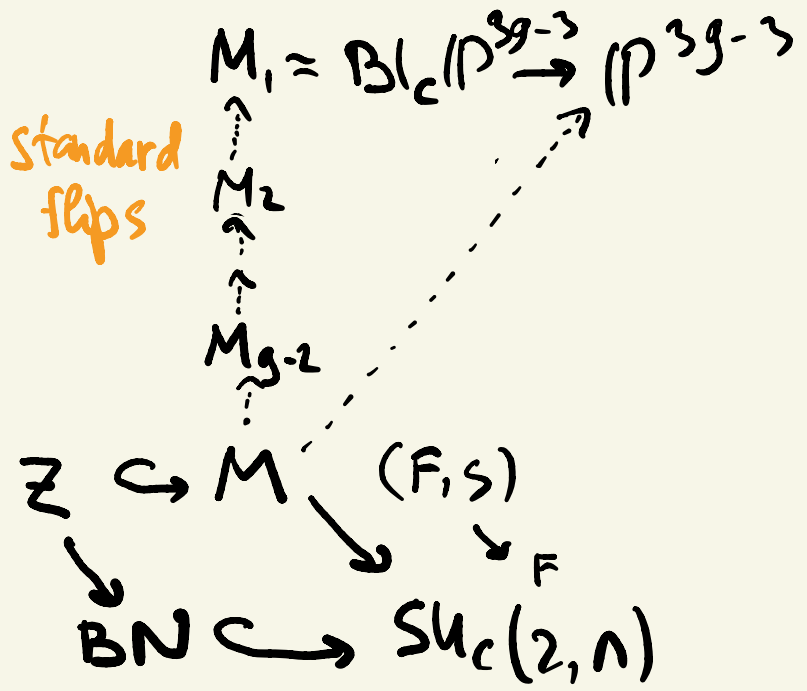 M₁ ≈ Bl_C ℙ^{3g-3} → ℙ^{3g-3}
standard
flips
M₂
M_{g-2}
Z ↪ M (F, s)
F
BN ↪ SU_C(2, Λ)